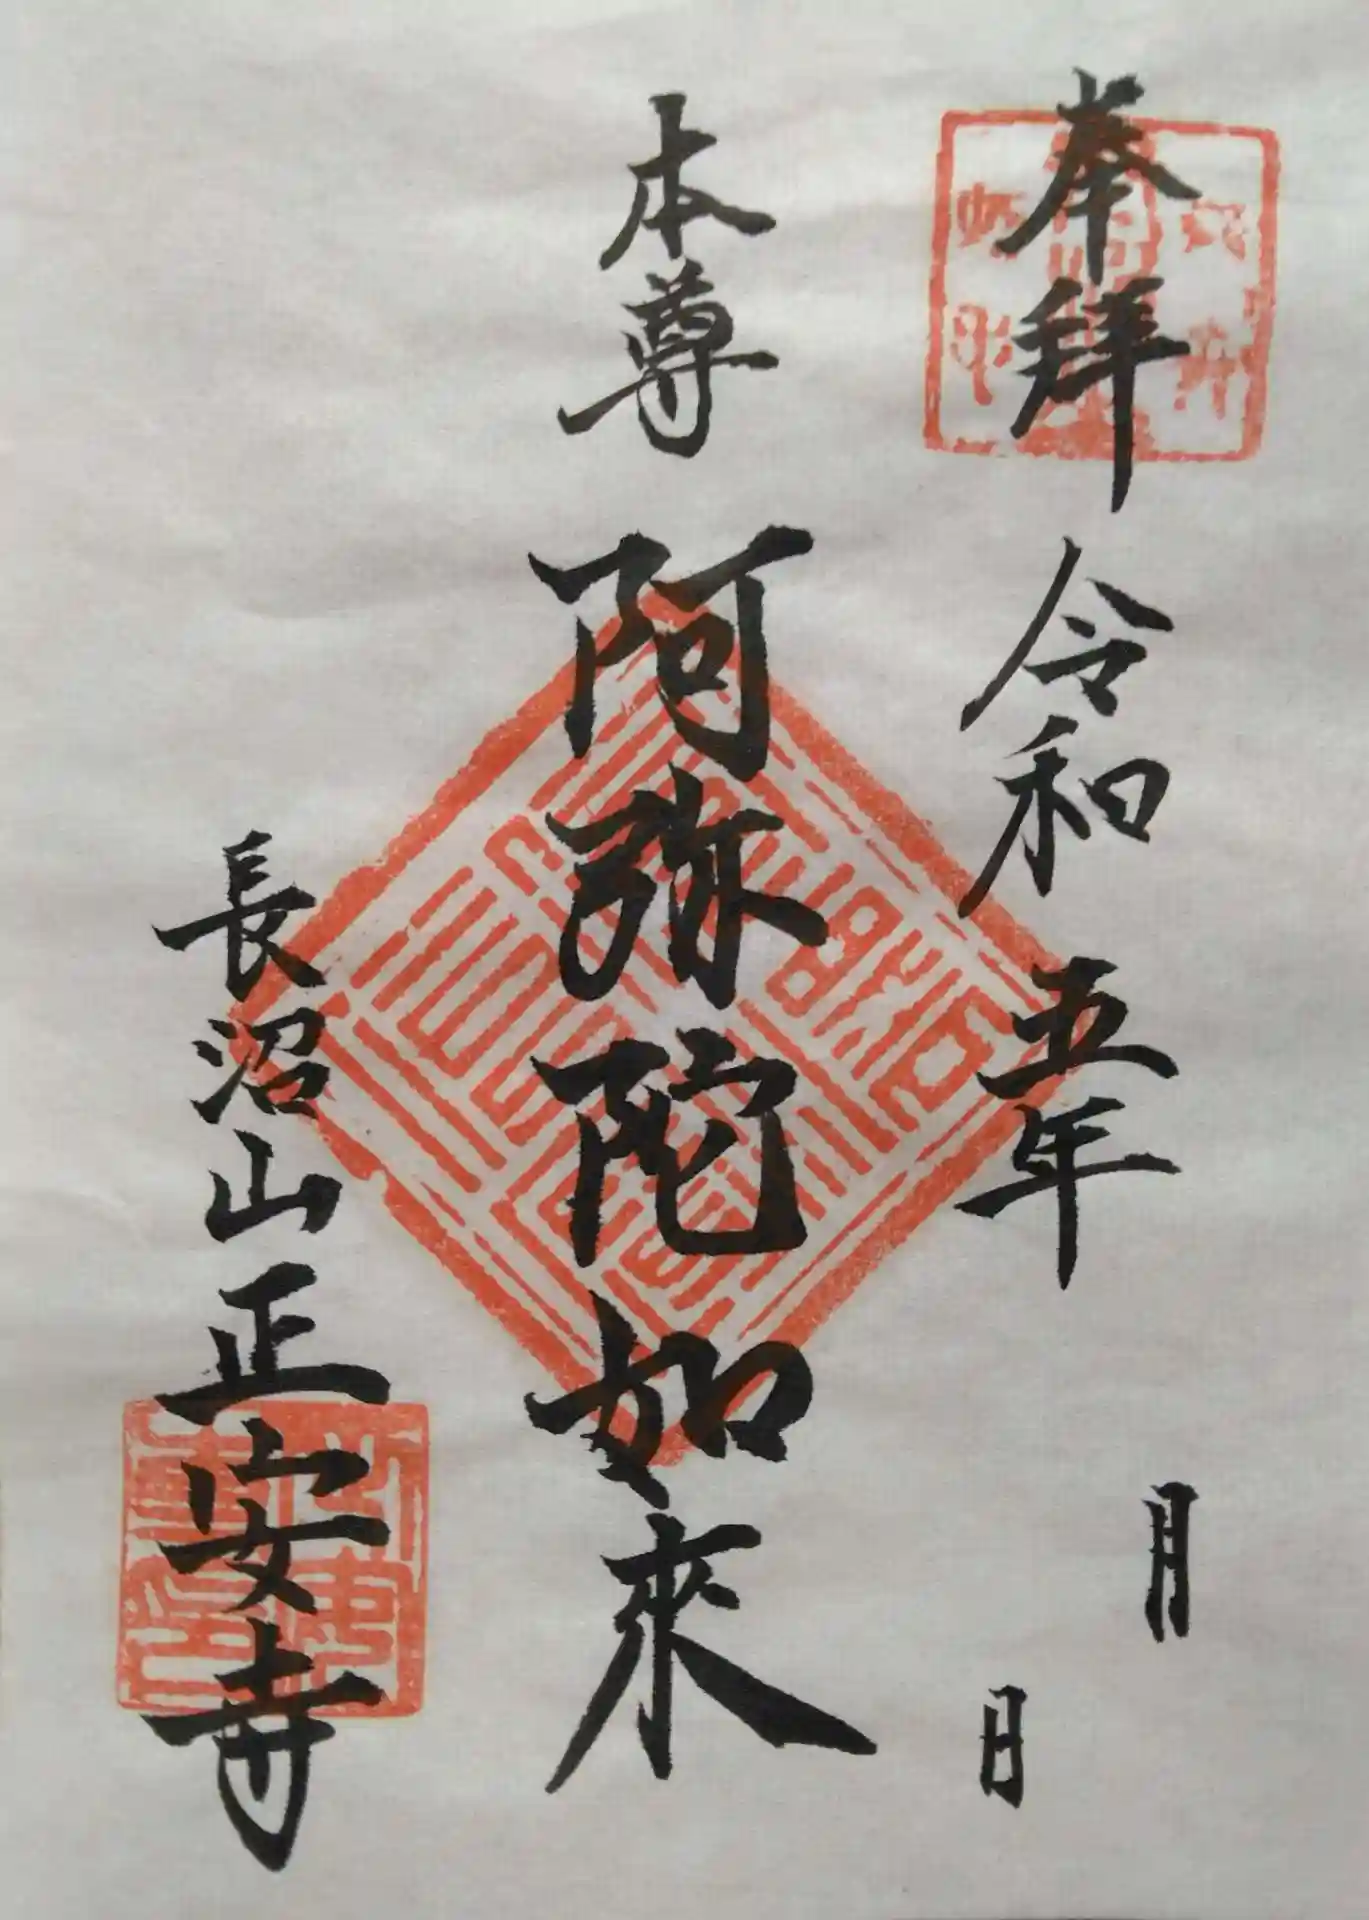 奉拝 令和五年 月 日
本尊 阿弥陀如來
長沼山正安寺